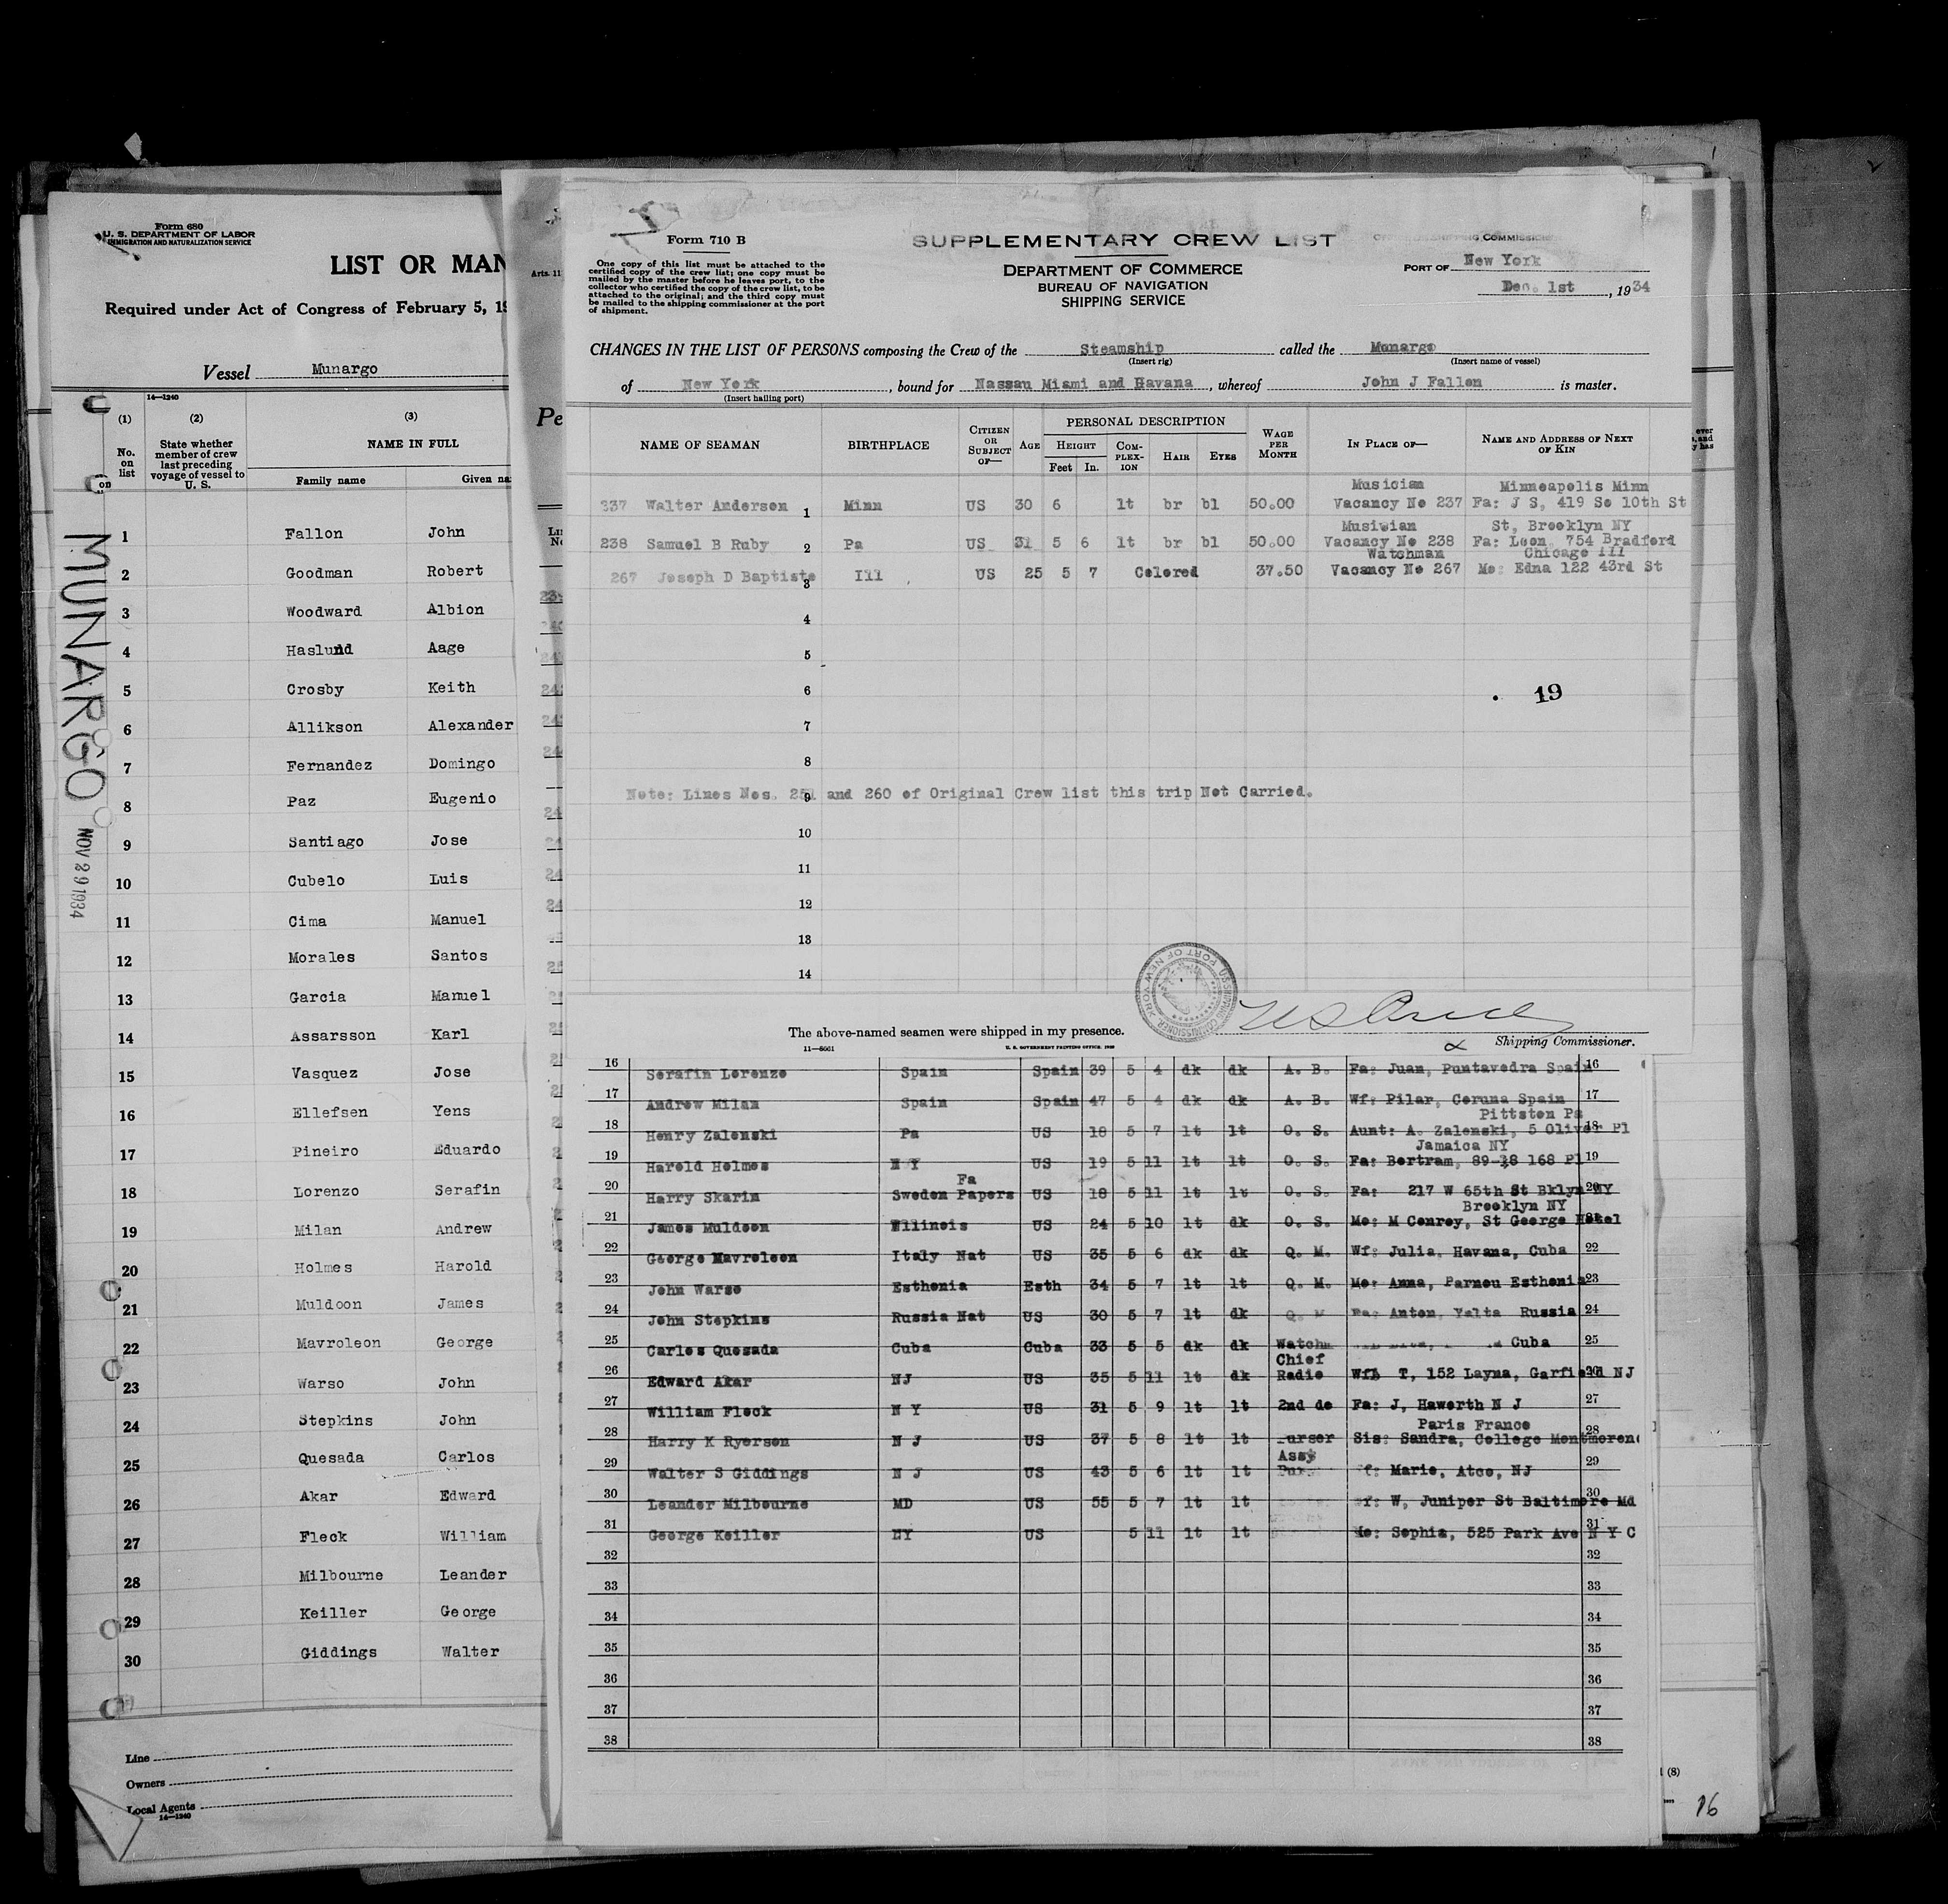 Form 680
U. S. DEPARTMENT OF LABOR
IMMIGRATION AND NATURALIZATION SERVICE
LIST OR MAN
Required under Act of Congress of February 5, 19
Vessel Munargo
14—1240
(1) (2) (3)
No. on list
State whether member of crew last preceding voyage of vessel to U. S.
NAME IN FULL
Family name Given na
1 Fallon John
2 Goodman Robert
3 Woodward Albion
4 Haslund Aage
5 Crosby Keith
6 Allikson Alexander
7 Fernandez Domingo
8 Paz Eugenio
9 Santiago Jose
10 Cubelo Luis
11 Cima Manuel
12 Morales Santos
13 Garcia Manuel
14 Assarsson Karl
15 Vasquez Jose
16 Ellefsen Yens
17 Pineiro Eduardo
18 Lorenzo Serafin
19 Milan Andrew
20 Holmes Harold
21 Muldoon James
22 Mavroleon George
23 Warso John
24 Stepkins John
25 Quesada Carlos
26 Akar Edward
27 Fleck William
28 Milbourne Leander
29 Keiller George
30 Giddings Walter
Line
Owners
Local Agents
14—1240
MUNARGO
NOV 29 1934
Arts. 11
Pe
Form 710 B
One copy of this list must be attached to the
certified copy of the crew list; one copy must be
mailed by the master before he leaves port, to the
collector who certified the copy of the crew list, to be
attached to the original; and the third copy must
be mailed to the shipping commissioner at the port
of shipment.
SUPPLEMENTARY CREW LIST
DEPARTMENT OF COMMERCE
BUREAU OF NAVIGATION
SHIPPING SERVICE
PORT OF New York
Dec. 1st, 1934
CHANGES IN THE LIST OF PERSONS composing the Crew of the Steamship called the Munargo
(Insert rig) (Insert name of vessel)
of New York, bound for Nassau Miami and Havana, whereof John J Fallon is master.
(Insert hailing port)
NAME OF SEAMAN BIRTHPLACE CITIZEN OR SUBJECT OF— AGE PERSONAL DESCRIPTION WAGE PER MONTH IN PLACE OF— NAME AND ADDRESS OF NEXT OF KIN
HEIGHT COMPLEXION HAIR EYES
Feet In.
Musician Minneapolis Minn
237 Walter Anderson 1 Minn US 30 6 lt br bl 50.00 Vacancy No 237 Fa: J S, 419 So 10th St
Musician St, Brooklyn NY
238 Samuel B Ruby 2 Pa US 31 5 6 lt br bl 50.00 Vacancy No 238 Fa: Leon, 754 Bradford
Watchman Chicago Ill
267 Joseph D Baptiste 3 Ill US 25 5 7 Colored 37.50 Vacancy No 267 Mo: Edna 122 43rd St
4
5
6
19
7
8
Note: Lines Nos. 251 and 260 of Original Crew list this trip Not Carried.
9
10
11
12
13
14
The above-named seamen were shipped in my presence.
11—5661
U. S. GOVERNMENT PRINTING OFFICE
Shipping Commissioner.
U.S. SHIPPING COMMISSIONER PORT OF NEW YORK
16 Serafin Lorenzo Spain Spain 39 5 4 dk dk A. B. Fa: Juan, Puntavedra Spain 16
17 Andrew Milan Spain Spain 47 5 4 dk dk A. B. Wf: Pilar, Coruna Spain 17
Pittston Pa
18 Henry Zalenski Pa US 18 5 7 lt lt O. S. Aunt: A. Zalenski, 5 Oliver Pl 18
Jamaica NY
19 Harold Holmes N Y US 19 5 11 lt lt O. S. Fa: Bertram, 89-38 168 Pl 19
Fa
20 Harry Skarin Sweden Papers US 18 5 11 lt lt O. S. Fa: 217 W 65th St Bklyn NY 20
Brooklyn NY
21 James Muldoon Illinois US 24 5 10 lt dk O. S. Mo: M Conrey, St George Hotel 21
22 George Mavroleon Italy Nat US 35 5 6 dk dk Q. M. Wf: Julia, Havana, Cuba 22
23 John Warso Esthonia Esth 34 5 7 lt lt Q. M. Mo: Anna, Parnou Esthonia 23
24 John Stepkins Russia Nat US 30 5 7 lt dk Q M Fa: Anton, Yalta Russia 24
25 Carlos Quesada Cuba Cuba 33 5 5 dk dk Watchm Cuba 25
Chief
26 Edward Akar NJ US 35 5 11 lt dk Radio Wf: T, 152 Layma, Garfield NJ 26
27 William Fleck N Y US 31 5 9 lt lt 2nd do Fa: J, Haworth N J 27
Paris France
28 Harry K Ryerson N J US 37 5 8 lt lt Purser Sis: Sandra, College Montmorenc 28
Asst
29 Walter S Giddings N J US 43 5 6 lt lt Pur Wf: Marie, Atco, NJ 29
30 Leander Milbourne MD US 55 5 7 lt lt Wf: W, Juniper St Baltimore Md 30
31 George Keiller NY US 5 11 lt lt Mo: Sophia, 525 Park Ave N Y C 31
32 32
33 33
34 34
35 35
36 36
37 37
38 38
(8)
16